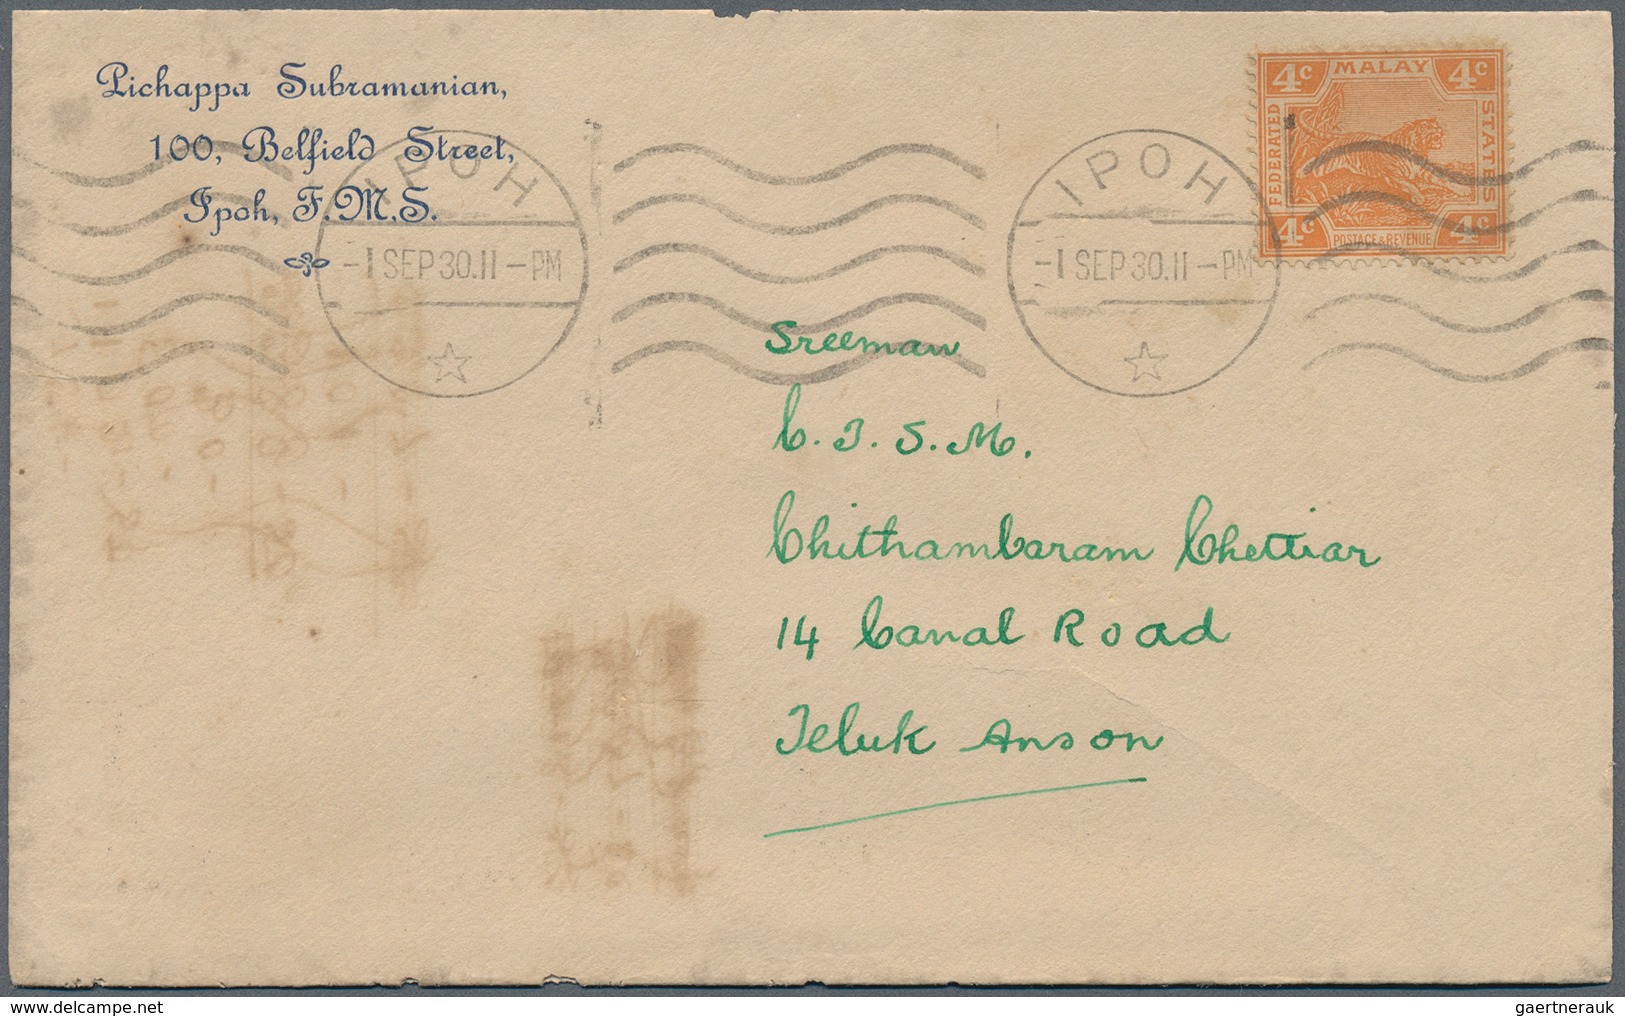 Pichappa Subramanian,
100, Belfield Street,
Ipoh, F.M.S.
IPOH
-1 SEP 30.11-PM
IPOH
-1 SEP 30.11-PM
4c MALAY 4c
FEDERATED
STATES
4c POSTAGE & REVENUE 4c
Sreeman
C. T. S. M.
Chithambaram Chettiar
14 Canal Road
Teluk Anson
gaertnerauk